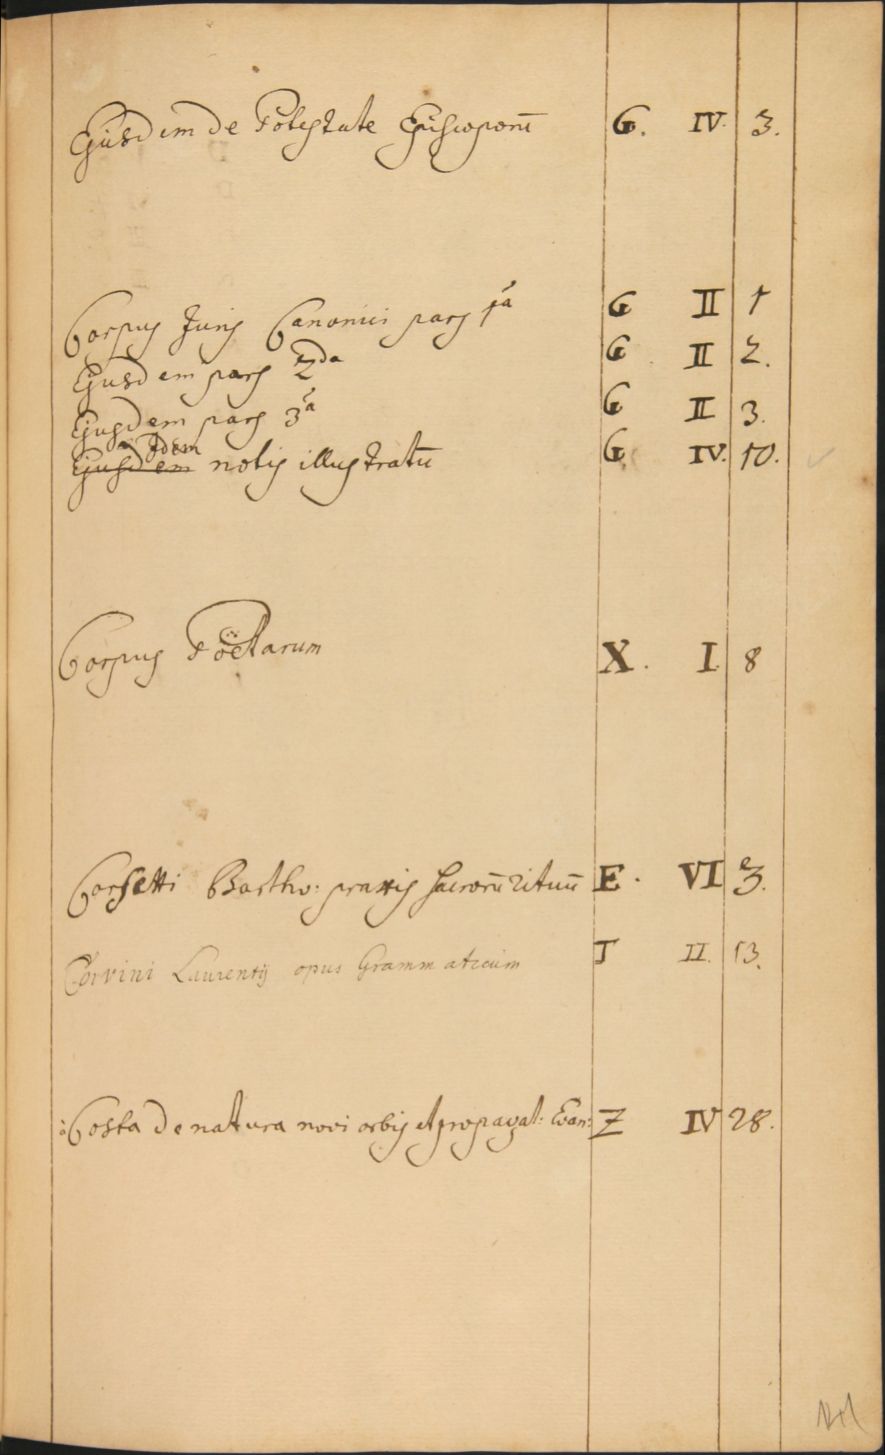 Ejusdem de Potestate Episcoporū G. IV. 3.
Corpus Juris Canonici pars 1a G II 1
Ejusdem pars 2da G II 2.
Ejusdem pars 3a G II 3.
Idem
Ejusdem notis illustratū G. IV. 10.
Corpus Poëtarum X. I 8
Corsetti Bartho: praxis sacrorū rituū E. VI 3.
Corvini Laurentij opus Grammaticum T II. 13.
à Costa de natura novi orbis et propagat: Evan: Z IV 28.